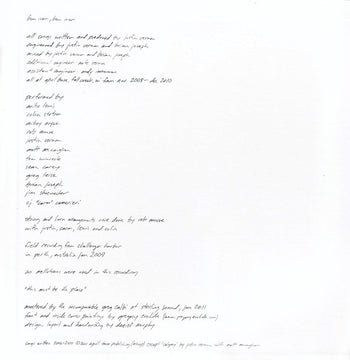 bon iver, bon iver
all songs written and produced by justin vernon
engineered by justin vernon and brian joseph
mixed by justin vernon and brian joseph
additional engineer nate vernon
assistant engineer andy
all at april base, fall creek, wi from 2008 - 2010
performed by
mike lewis
colin stetson
mikey noyce
rob moose
justin vernon
matt mccaughan
tom wincek
sean carey
greg leisz
brian joseph
jim schoenecker
cj "carm" camerieri
string and horn arrangements were done by rob moose
with justin, carm, lewis and colin
field recording from challenger harbor
in perth, australia jan 2009
no were used in this recording
"this must be the place"
mastered by the incomparable greg calbi at sterling sound, jan 2011
front and inside cover paintings by gregory euclide
design, layout and handwriting by daniel murphy
songs written 2008-2010 april base publishing (ascap) except "calgary" by justin vernon with matt mccaughan